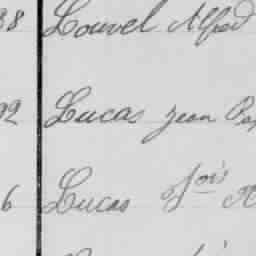 38 Louvel Alfred
92 Lucas Jean
6 Lucas fois